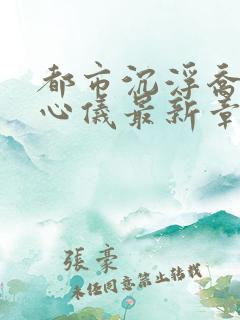 都市沉浮乔
心儀最新章
張豪
未经同意禁止转载